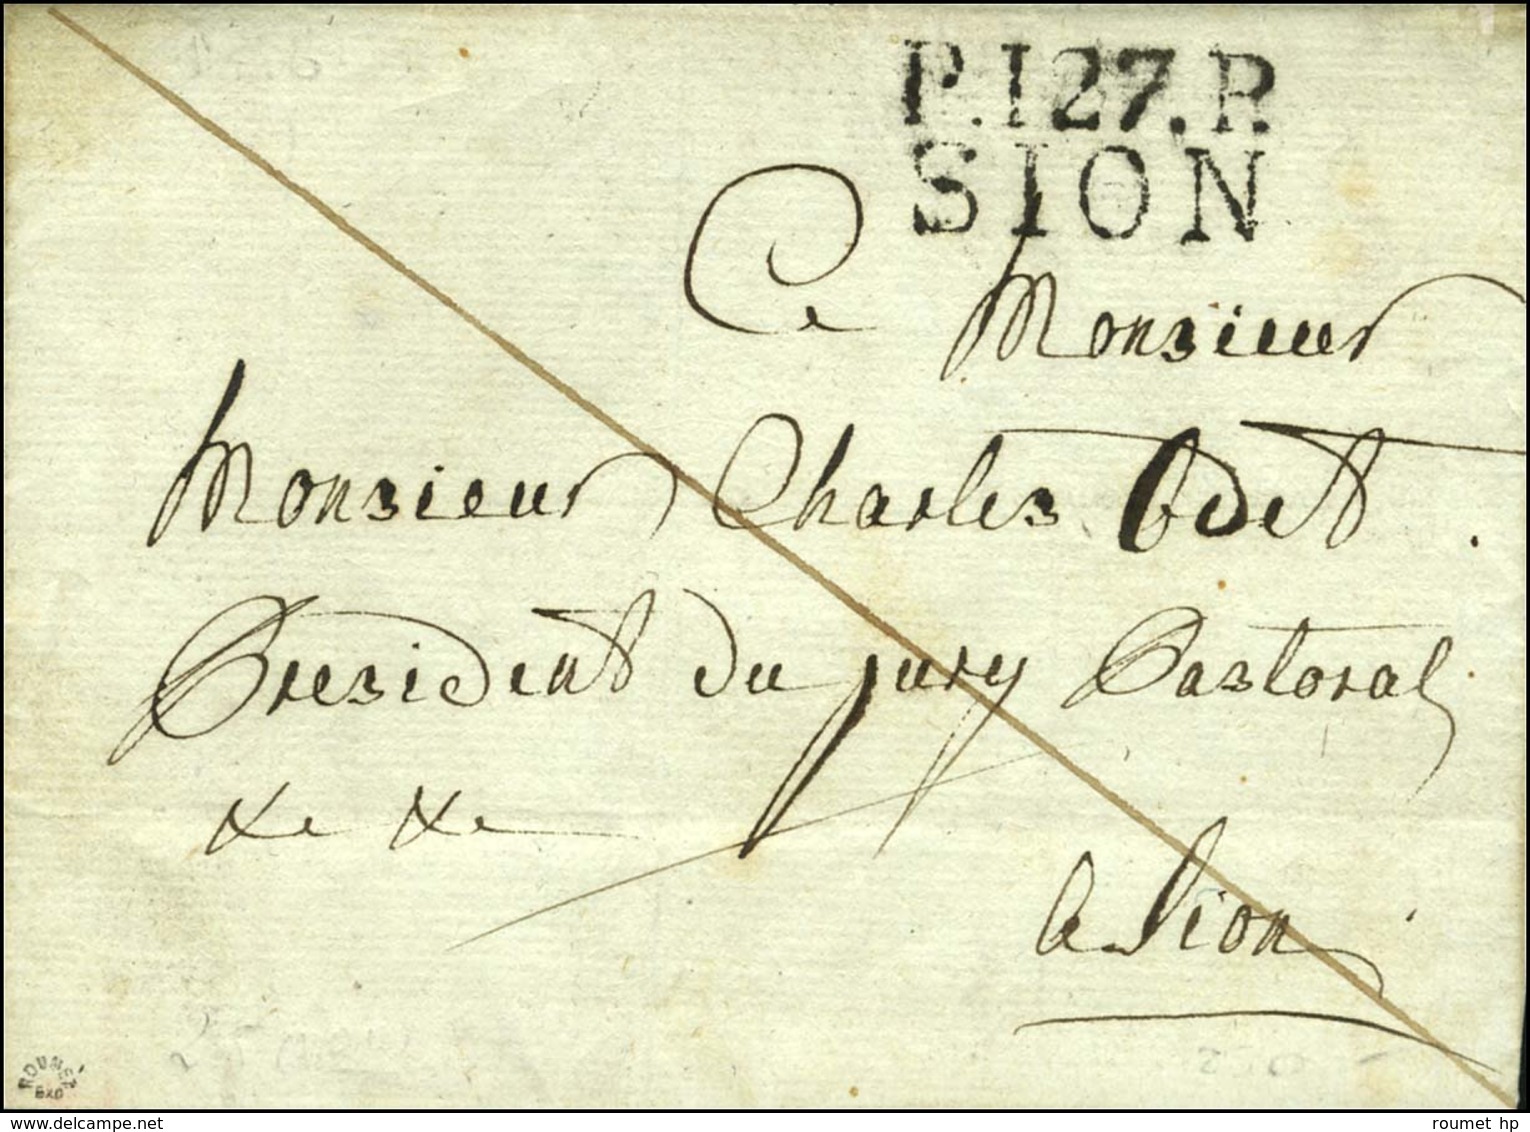 P.127.P.
SION
A Monsieur
Monsieur Charles Odet
President du jury Pastoral
&c &c
a Sion
ROUMET
EXP
www.delcampe.net
roumet hp